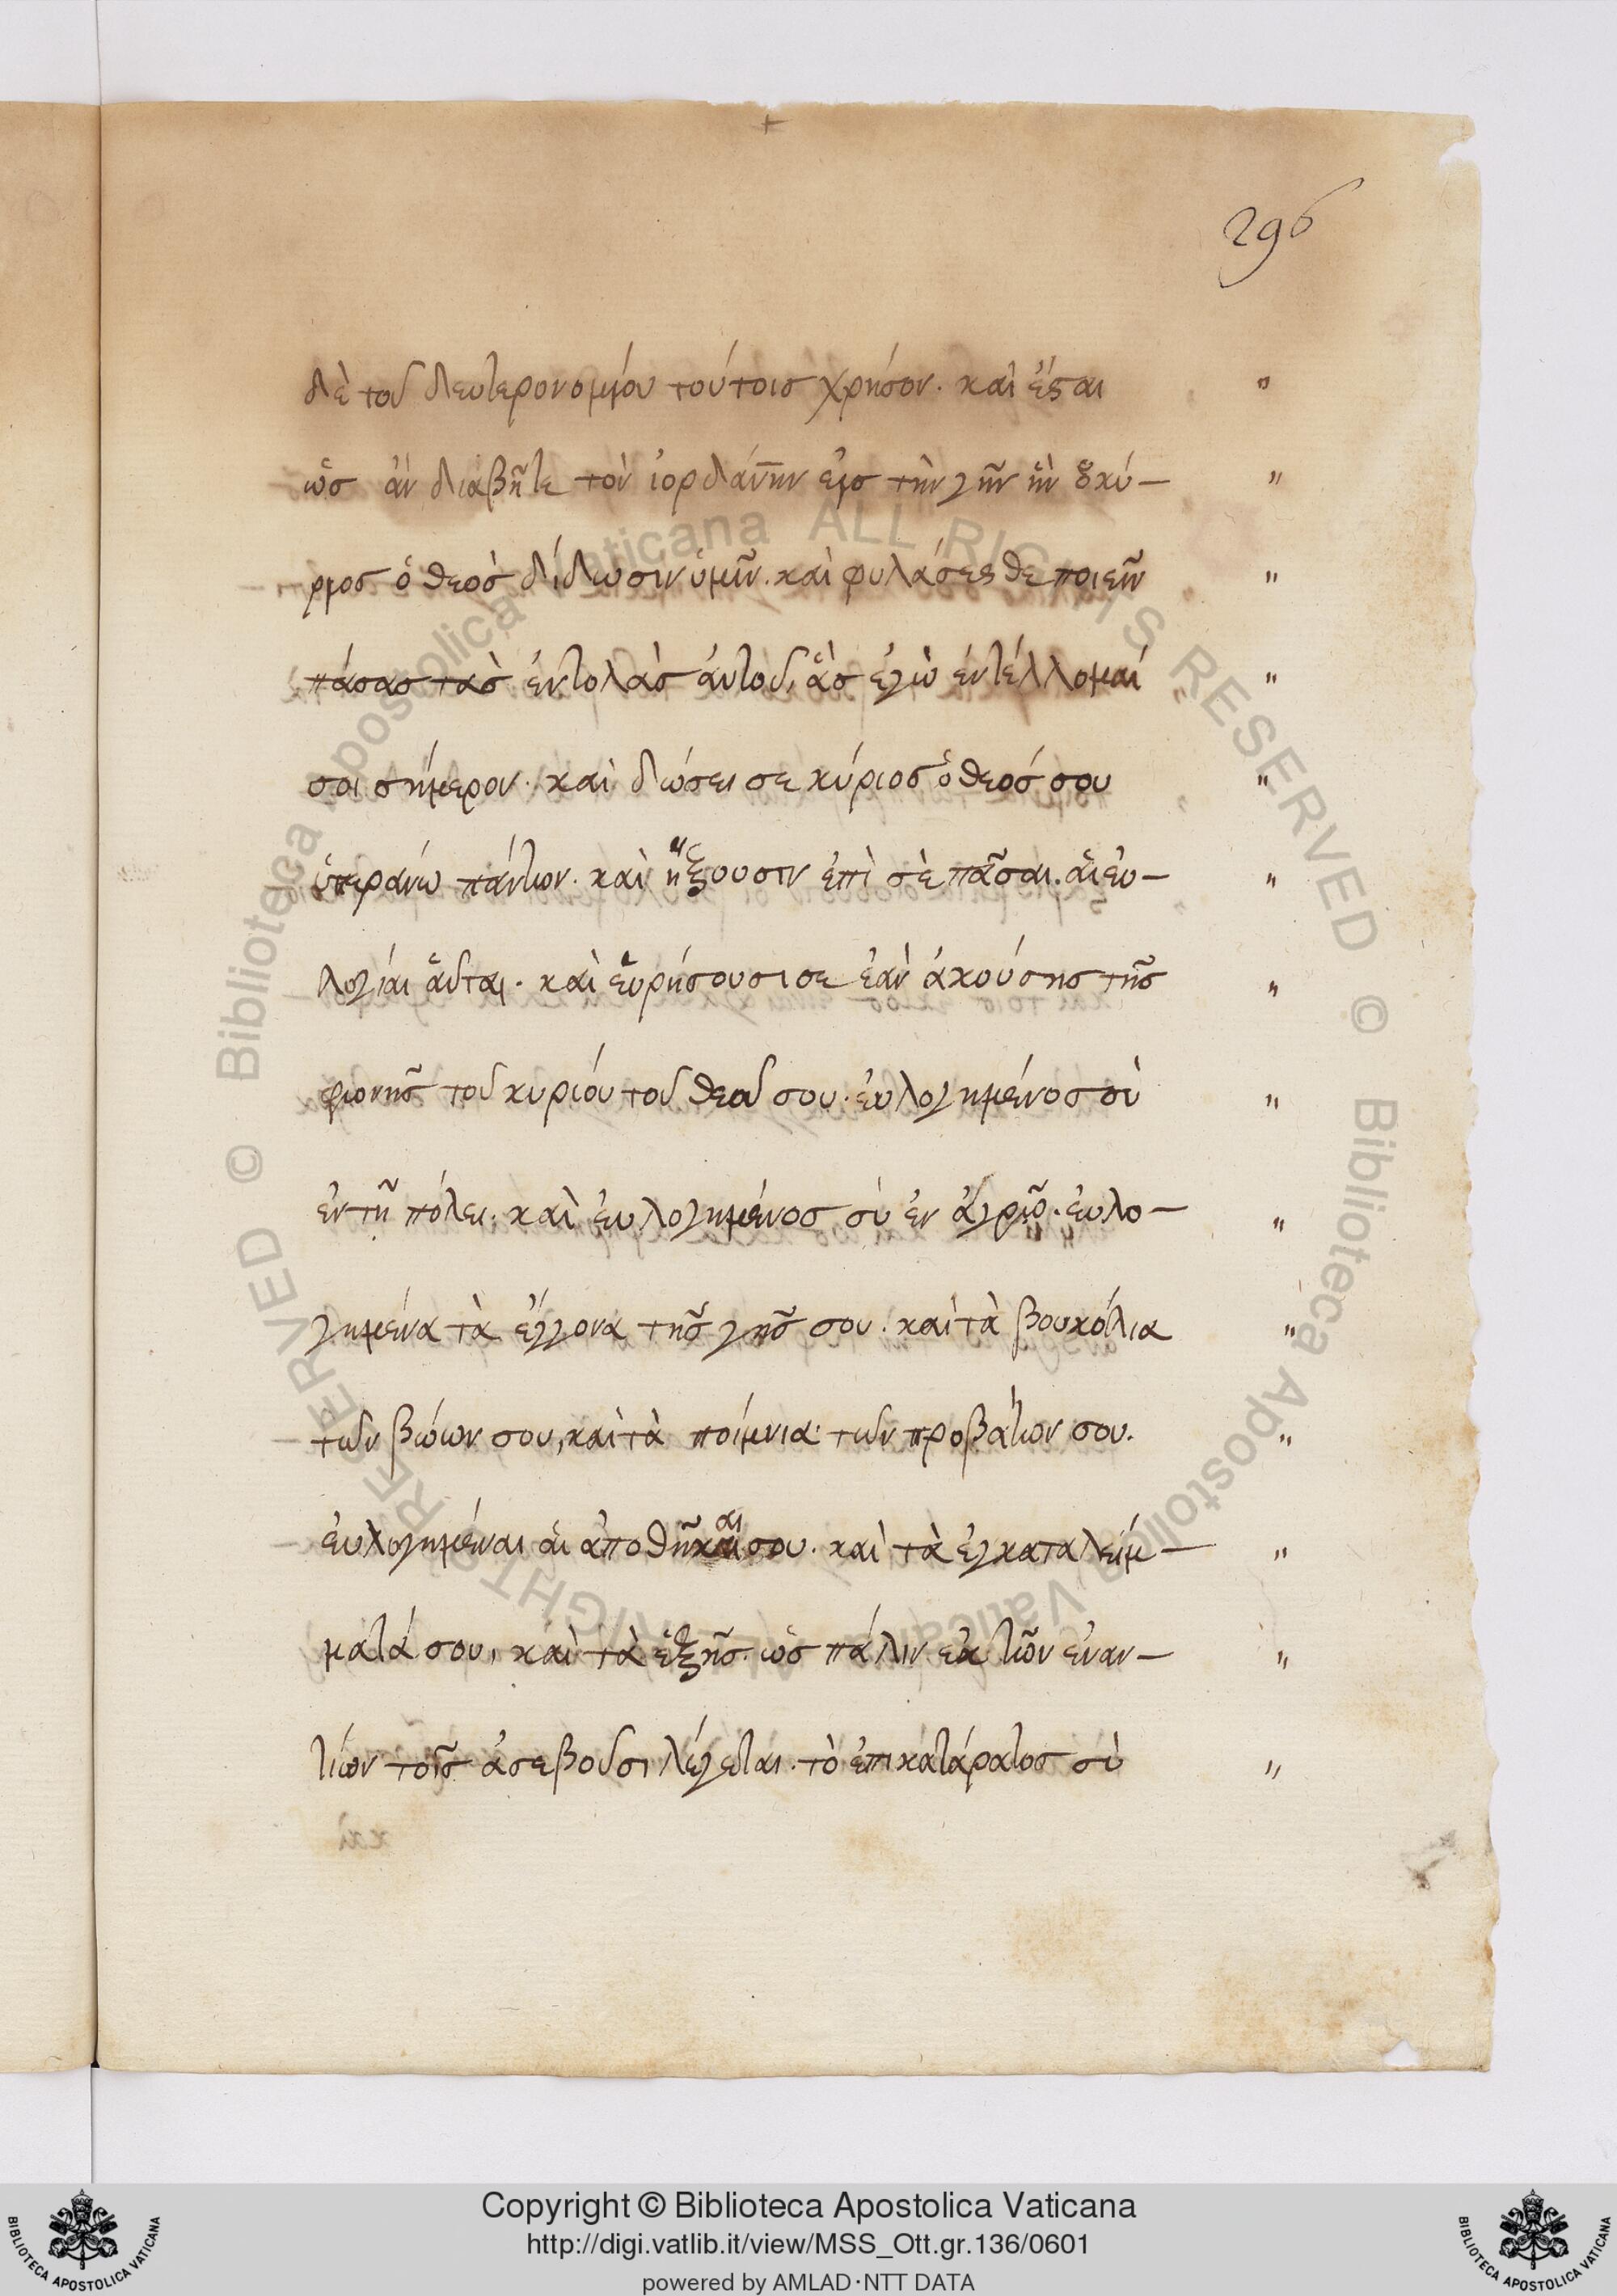 296
δὲ τοῦ δευτερονομίου τούτοισ χρήσον. καὶ ἔσται "
ὡσ ἀν διαβῆτε τὸν ἰορδάνην εἰσ τὴν γῆν ἣν ὁ κύ- "
ριοσ ὁ θεοσ δίδωσιν ὑμῖν. καὶ φυλάσεσθε ποιεῖν "
πάσασ τασ ἐντολὰσ ἀυτοῦ, ἃσ ἐγὼ ἐντέλλομαί "
σοι σήμερον. καὶ δώσει σε κύριοσ ὁ θεόσ σου "
ὑπεράνω πάντων. καὶ ἥξουσιν ἐπὶ σὲ πᾶσαι. ἁι ἐυ- "
λογίαι ἅυται. καὶ ἑυρήσουσι σε ἐὰν ἀκούσησ τῆσ "
φωνῆσ τοῦ κυρίου τοῦ θεοῦ σου. ἐυλογημένοσ σὺ "
ἐν τῆ πόλει. καὶ ἐυλογημένοσ σὺ ἐν ἀγρῷ. ἐυλο- "
γημένα τὰ ἔγγονα τῆσ γῆσ σου. καὶ τὰ βουκόλια "
τῶν βώων σου, καὶ τὰ ποίμνια τῶν προβάτων σου. "
ἐυλογημέναι ἁι ἀποθῆκαι σου. καὶ τὰ ἐγκαταλείμ- "
ματά σου, καὶ τὰ ἑξῆσ. ὡσ πάλιν ἐκ τῶν ἐναν- "
τίων τοῖσ ἀσεβοῦσι λέγεται. τὸ ἐπικατάρατοσ σὺ "
Copyright © Biblioteca Apostolica Vaticana
http://digi.vatlib.it/view/MSS_Ott.gr.136/0601
powered by AMLAD·NTT DATA